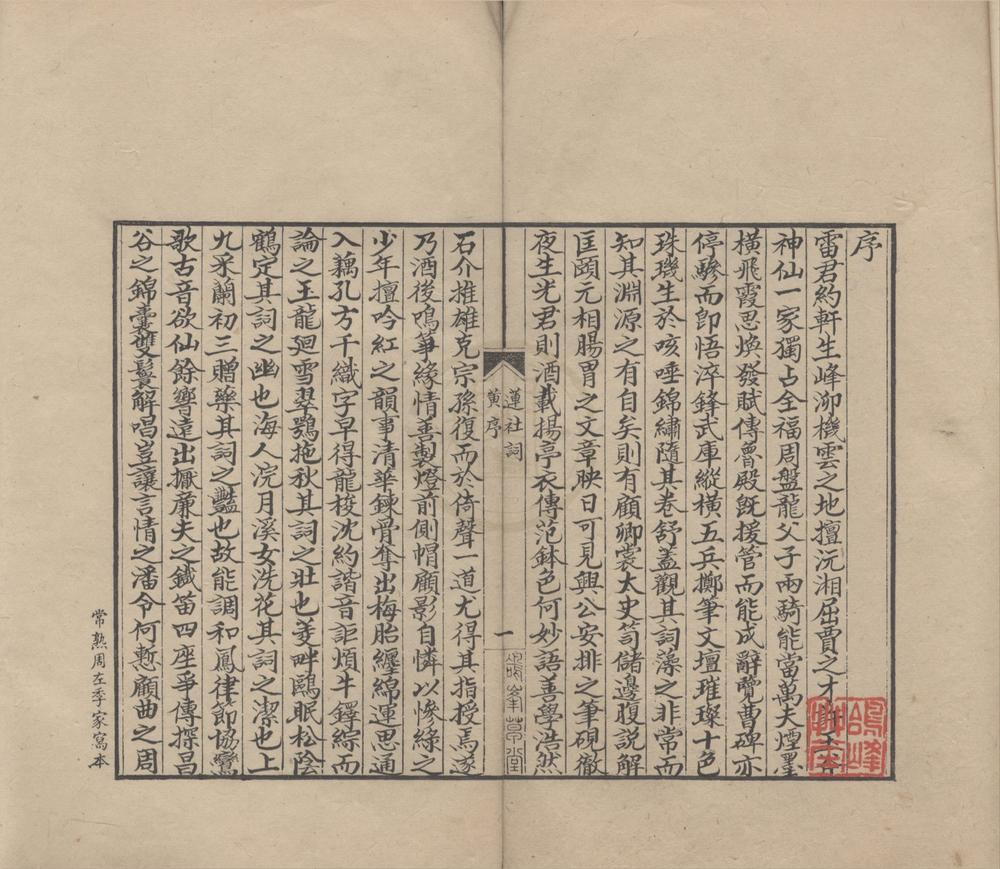 序
雷君約軒生峰泖機雲之地擅沅湘屈賈之才
神仙一家獨占全福周盤龍父子兩騎能當萬夫煙墨
橫飛霞思煥發賦傳魯殿既援管而能成辭覽曹碑亦
停驂而即悟淬鋒武庫縱橫五兵擲筆文壇璀璨十色
珠璣生於咳唾錦繡隨其卷舒蓋觀其詞藻之非常而
知其淵源之有自矣則有顧卿裳太史笥儲邊腹說解
匡頤元相腸胃之文章映日可見興公安排之筆硯徹
夜生光君則酒載揚亭衣傳范鉢色何妙語善學浩然
蓮社詞
黃序
一
鴿峯草堂
石介推雄克宗孫復而於倚聲一道尤得其指授焉遂
乃酒後鳴箏緣情善製燈前側帽顧影自憐以慘綠之
少年擅吟紅之韻事清華鍊骨奪出梅胎纏綿運思通
入藕孔方干織字早得龍梭沈約諧音詎煩牛鐸綜而
論之玉龍迴雪翠鶚拖秋其詞之壯也菱畔鷗眠松陰
鶴定其詞之幽也海人浣月溪女洗花其詞之潔也上
九采蘭初三贈藥其詞之豔也故能調和鳳律節協鸞
歌古音欲仙餘響達出擫廉夫之鐵笛四座爭傳探昌
谷之錦囊雙鬟解唱豈讓言情之潘令何慙顧曲之周
常熟周左季家寫本
鴿峰草堂